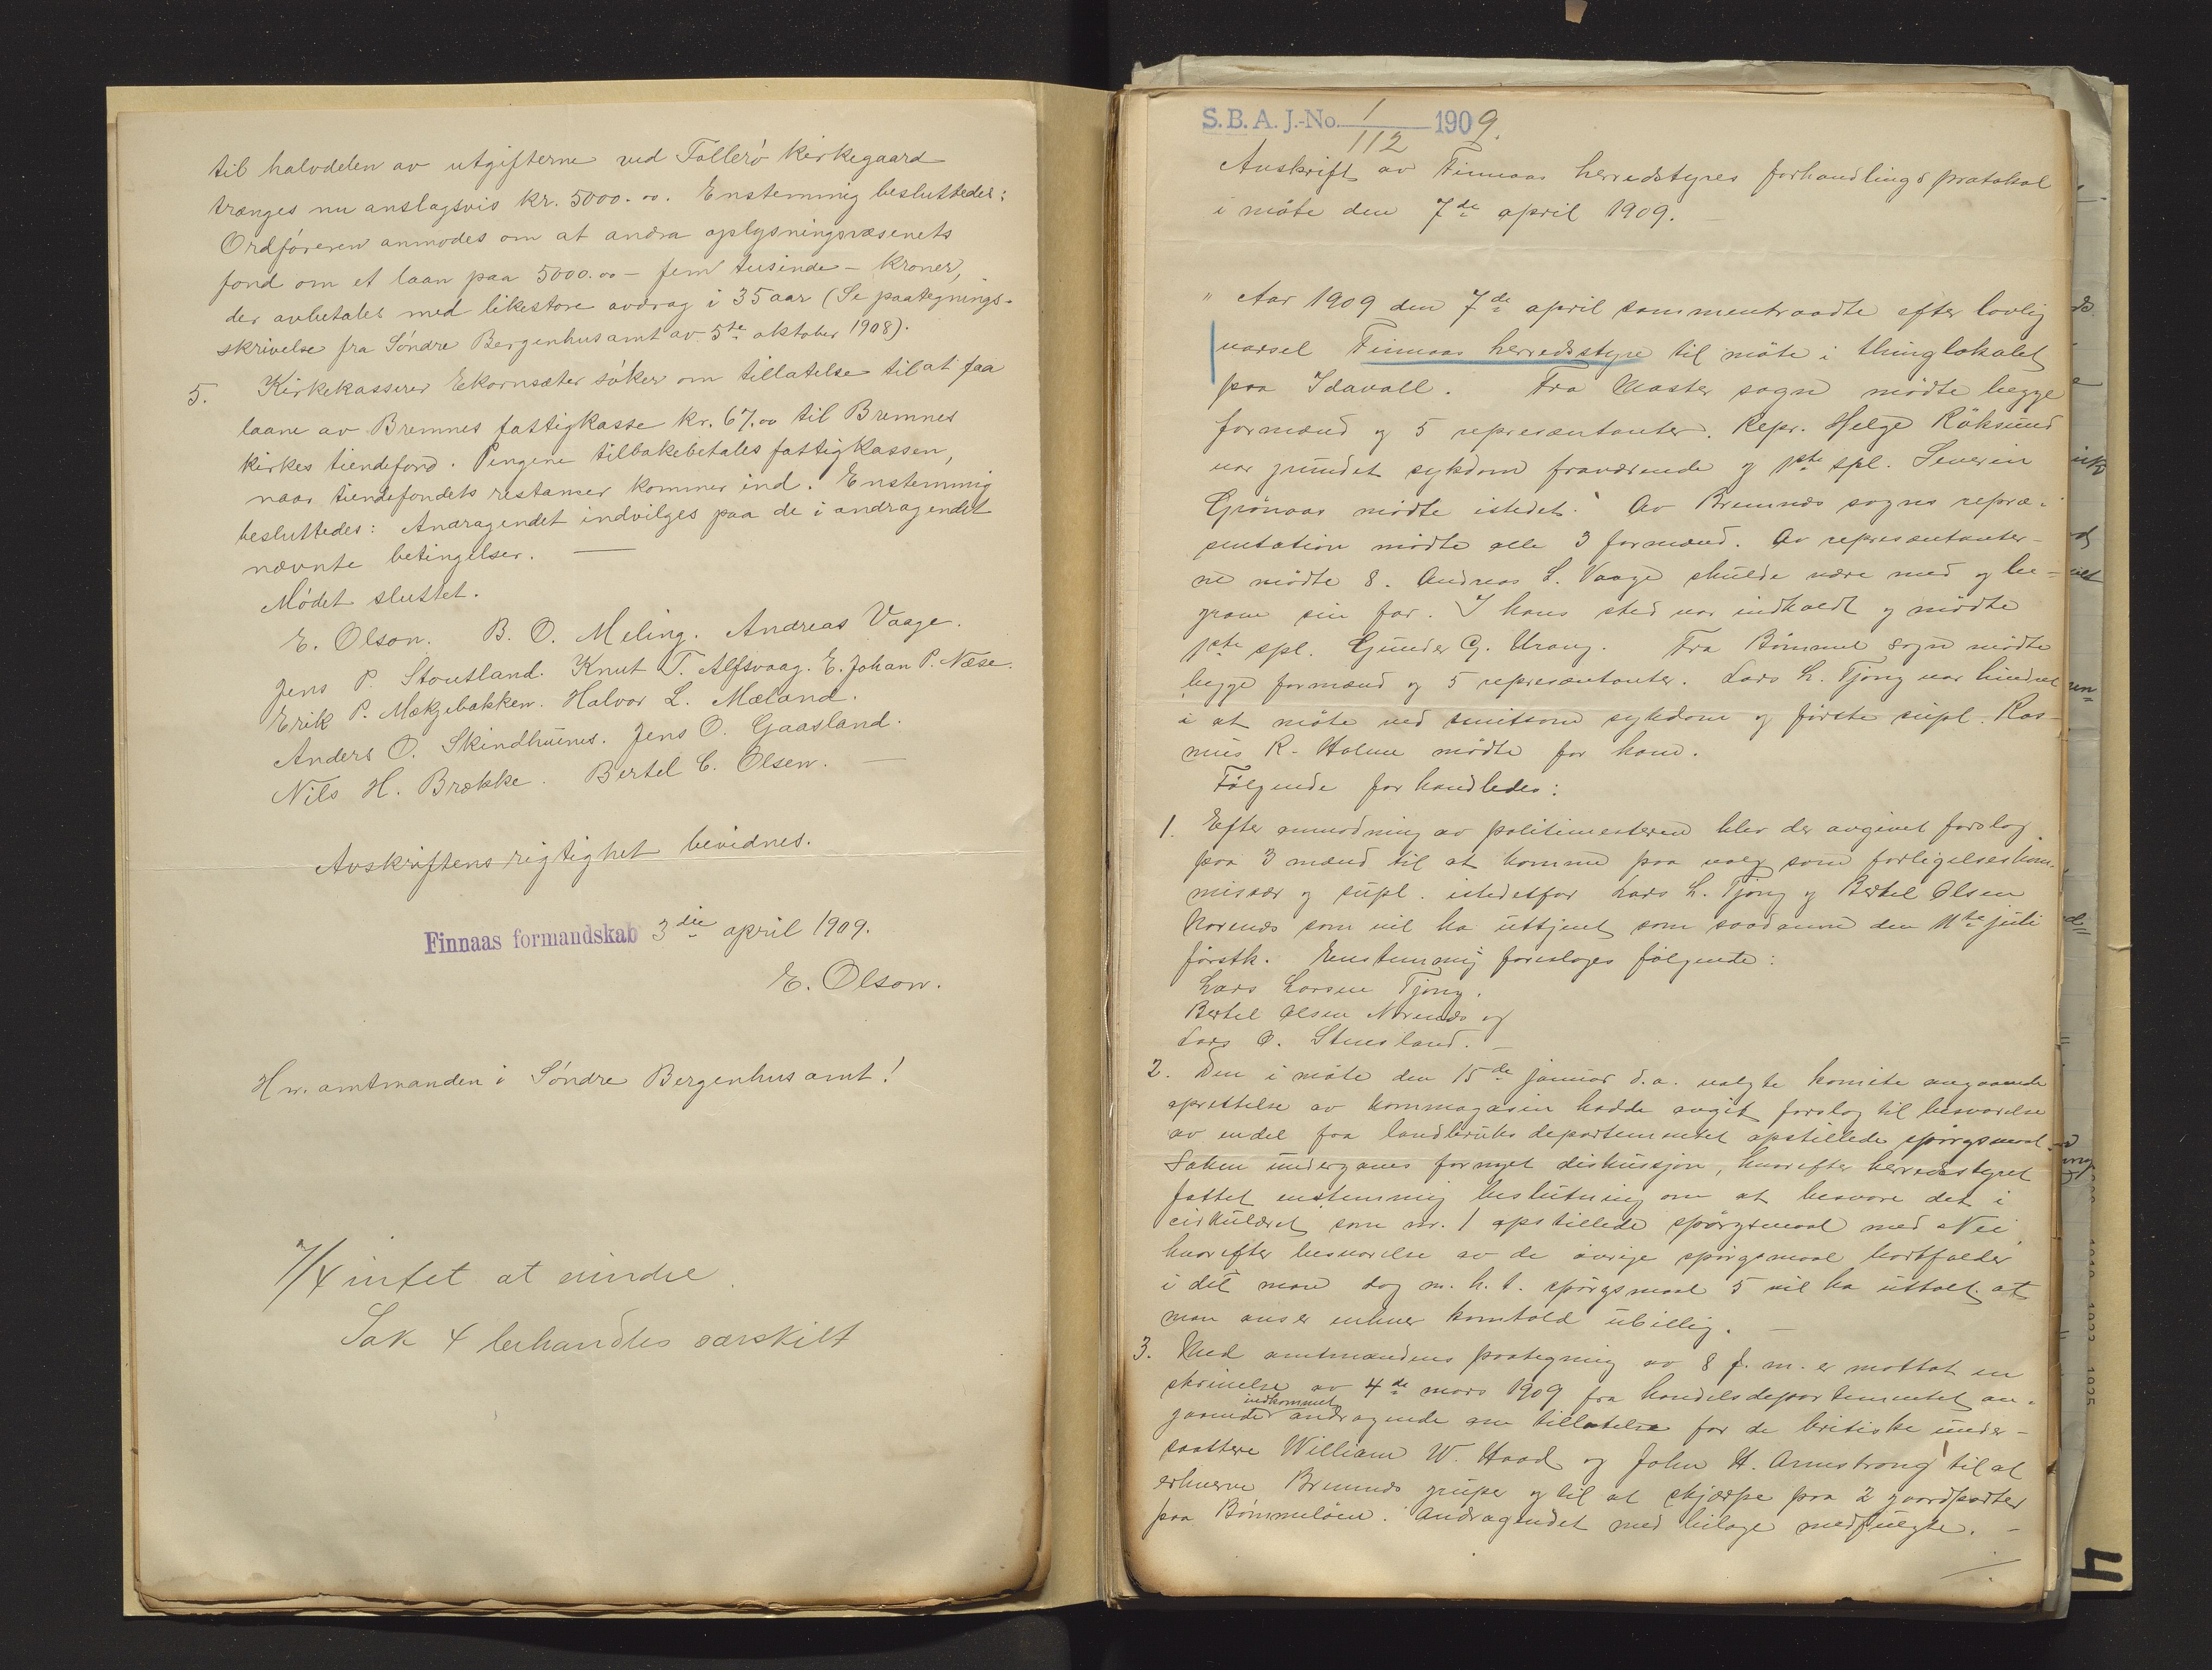 til halvdelen av utgifterne ved Tollerö kirkegaard
trænges nu anslagsvis kr. 5000.00. Enstemmig besluttedes:
Ordföreren anmodes om at andra oplysningsvæsenets
fond om et laan paa 5000.00 – fem tusinde – kroner,
der avbetales med likestore avdrag i 35 aar (Se paategnings-
skrivelse fra Söndre Bergenhus amt av 5te oktober 1908).
5. Kirkekasserer Ekornsæter söker om tillatelse til at faa
laane av Bremnes fattigkasse kr. 67.00 til Bremnes
kirkes tiendefond. Pengene tilbakebetales fattigkassen,
naar tiendefondets restanser kommer ind. Enstemmig
besluttedes: Andragendet indvilges paa de i andragendet
nævnte betingelser. —
Mödet sluttet.
E. Olson. B. O. Meling. Andreas Vaage.
Jens P. Stoutland. Knut T. Alfsvaag. E. Johan P. Næse.
Erik P. Mækjebakken. Halvor L. Mæland.
Anders O. Skindhuenes. Jens O. Gaasland.
Nils H. Brække. Bertel C. Olsen. —
Avskriftens rigtighet bevidnes.
Finnaas formandskab 3die april 1909.
E. Olson.
Hr. amtmanden i Söndre Bergenhus amt!
7/4 intet at erindre.
Sak 4 behandles særskilt
S. B. A. J.-No. 1/112 1909.
Avskrift av Finnaas herredstyres forhandlingsprotokol
i möte den 7de april 1909. —
" Aar 1909 den 7de april sammentraadte efter lovlig
varsel Finnaas herredsstyre til möte i thinglokalet
paa Idavall. Fra Moster sogn mödte begge
formænd og 5 repræsentanter. Repr. Helge Röksund
var grundet sykdom fraværende og 1ste spl. Severin
Grönaas mödte istedet. Av Bremnes sogns repræ-
sentation mödte alle 3 formænd. Av repræsentanter-
ne mödte 8. Andreas L. Vaage skulde være med og be-
grave sin far. I hans sted var indkaldt og mödte
1ste spl. Gunder G. Urang. Fra Bömmel sogn mödte
begge formænd og 5 repræsentanter. Lars L. Tjong var hindret
i at möte ved smitsom sykdom og förste supl. Ras-
mus R. Holme mödte for ham.
Fölgende forhandledes:
1. Efter anmodning av politimesteren blev der avgivet forslag
paa 3 mænd til at komme paa valg som forligelseskom-
missær og supl. istedetfor Lars L. Tjong og Bertel Olsen
Norenæs som vil ha uttjent som saadanne den 11te juli
förstk. Enstemmig foresloges fölgende:
Lars Larsen Tjong.
Bertel Olsen Norenæs og
Lars O. Stuesland. —
2. Den i möte den 15de januar d.a. valgte komite angaaende
oprettelse av kornmagasin hadde avgit forslag til besvarelse
av endel fra landbruks departementet opstillede spörgsmaal.
Saken undergaves fornyet diskussjon, hvorefter herredsstyret
fattet enstemmig beslutning om at besvare det i
cirkulæret som nr. 1 opstillede spörgsmaal med Nei,
hvorefter besvarelse av de övrige spörgsmaal bortfalder
i det man dog m. h. t. spörgsmaal 5 vil ha uttalt at
man anser enhver korntold ubillig. —
3. Med amtmandens paategning av 8 f. m. er mottat en
skrivelse av 4de mars 1909 fra handelsdepartementet an-
gaaende indkommet andragende om tillatelse for de britiske under-
saatter William W. Hood og John H. Armstrong til at
erhverve Bremnes gruber og til at skjærpe paa 2 gaardparter
paa Bömmelöen. Andragendet med bilage medfulgte. —
./.